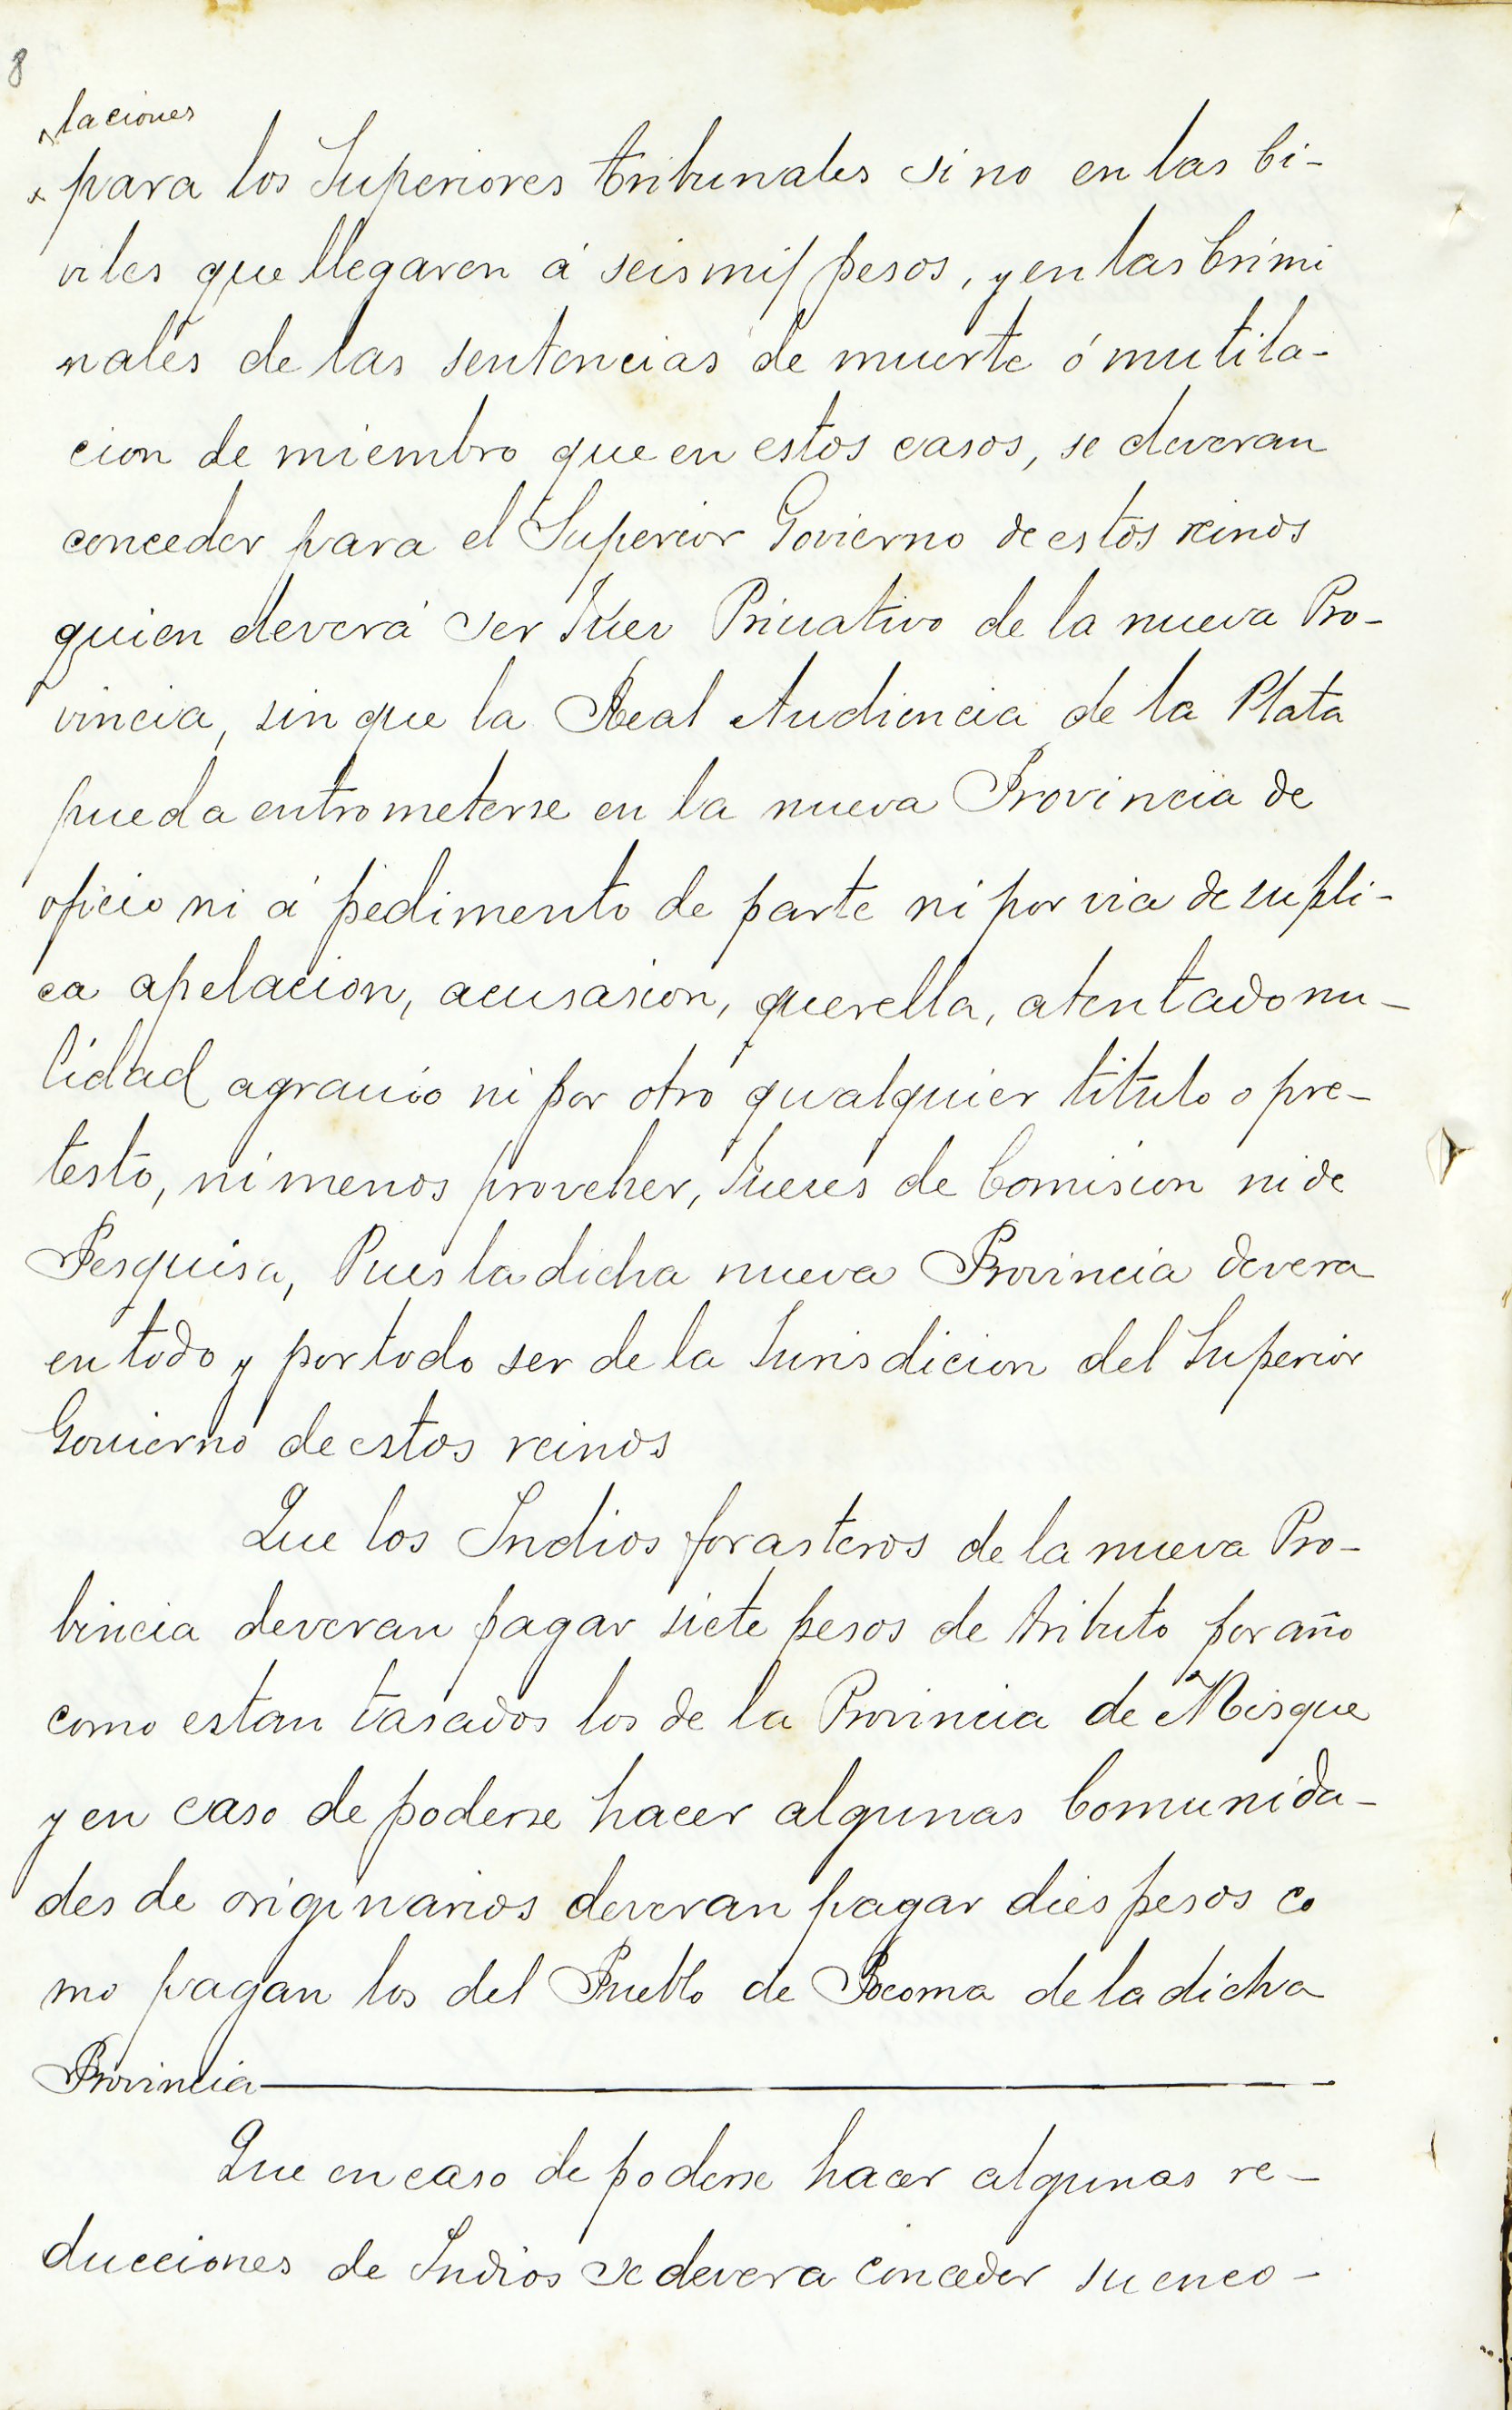 8
laciones
x para los Superiores tribunales si no en las Ci-
viles que llegaren á seis mil pesos, y en las Crimi
nales de las sentencias de muerte ó mutila-
cion de miembro que en estos casos, se deveran
conceder para el Superior Govierno de estos reinos
quien deverá ser Juez Privativo de la nueva Pro-
vincia, sin que la Real Audiencia de la Plata
pueda entrometerse en la nueva Provincia de
oficio ni á pedimento de parte ni por via de supli-
ca apelacion, acusasion, querella, atentado nu-
lidad agrauio ni por otro qualquier titulo o pre-
testo, ni menos proveher, Jueses de Comision ni de
Pesquisa, Pues la dicha nueva Provincia devera
en todo y por todo ser de la Jurisdicion del Superior
Gouierno de estos reinos
Que los Indios forasteros de la nueva Pro-
bincia deveran pagar siete pesos de tributo por año
como estan tasados los de la Provincia de Misque
y en caso de poderse hacer algunas Comunida-
des de originarios deveran pagar dies pesos co
mo pagan los del Pueblo de Pocoma de la dicha
Provincia
Que en caso de poderse hacer algunas re-
ducciones de Indios se devera conceder su enco-